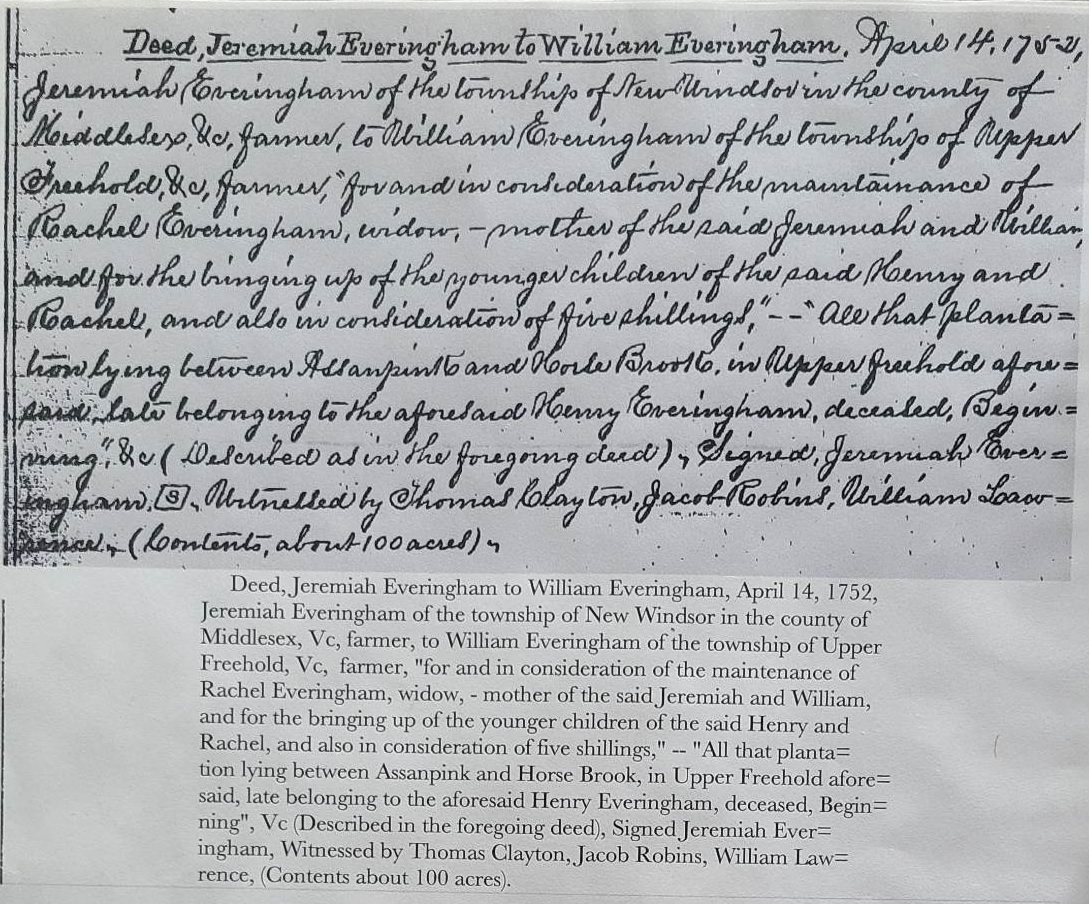 Deed, Jeremiah Everingham to William Everingham, April 14, 1752,
Jeremiah Everingham of the township of New Windsor in the county of
Middlesex, &c, farmer, to William Everingham of the township of Upper
Freehold, &c, farmer, "for and in consideration of the maintainance of
Rachel Everingham, widow, - mother of the said Jeremiah and William,
and for the bringing up of the younger children of the said Henry and
Rachel, and also in consideration of five shillings," -- "All that planta=
tion lying between Assanpink and Horse Brook, in Upper Freehold afore=
said, late belonging to the aforesaid Henry Everingham, deceased, Begin=
ning", &c (Described as in the foregoing deed), Signed, Jeremiah Ever=
ingham, S, Witnessed by Thomas Clayton, Jacob Robins, William Law=
rence, (Contents, about 100 acres),
Deed, Jeremiah Everingham to William Everingham, April 14, 1752,
Jeremiah Everingham of the township of New Windsor in the county of
Middlesex, Vc, farmer, to William Everingham of the township of Upper
Freehold, Vc, farmer, "for and in consideration of the maintenance of
Rachel Everingham, widow, - mother of the said Jeremiah and William,
and for the bringing up of the younger children of the said Henry and
Rachel, and also in consideration of five shillings," -- "All that planta=
tion lying between Assanpink and Horse Brook, in Upper Freehold afore=
said, late belonging to the aforesaid Henry Everingham, deceased, Begin=
ning", Vc (Described in the foregoing deed), Signed Jeremiah Ever=
ingham, Witnessed by Thomas Clayton, Jacob Robins, William Law=
rence, (Contents about 100 acres).